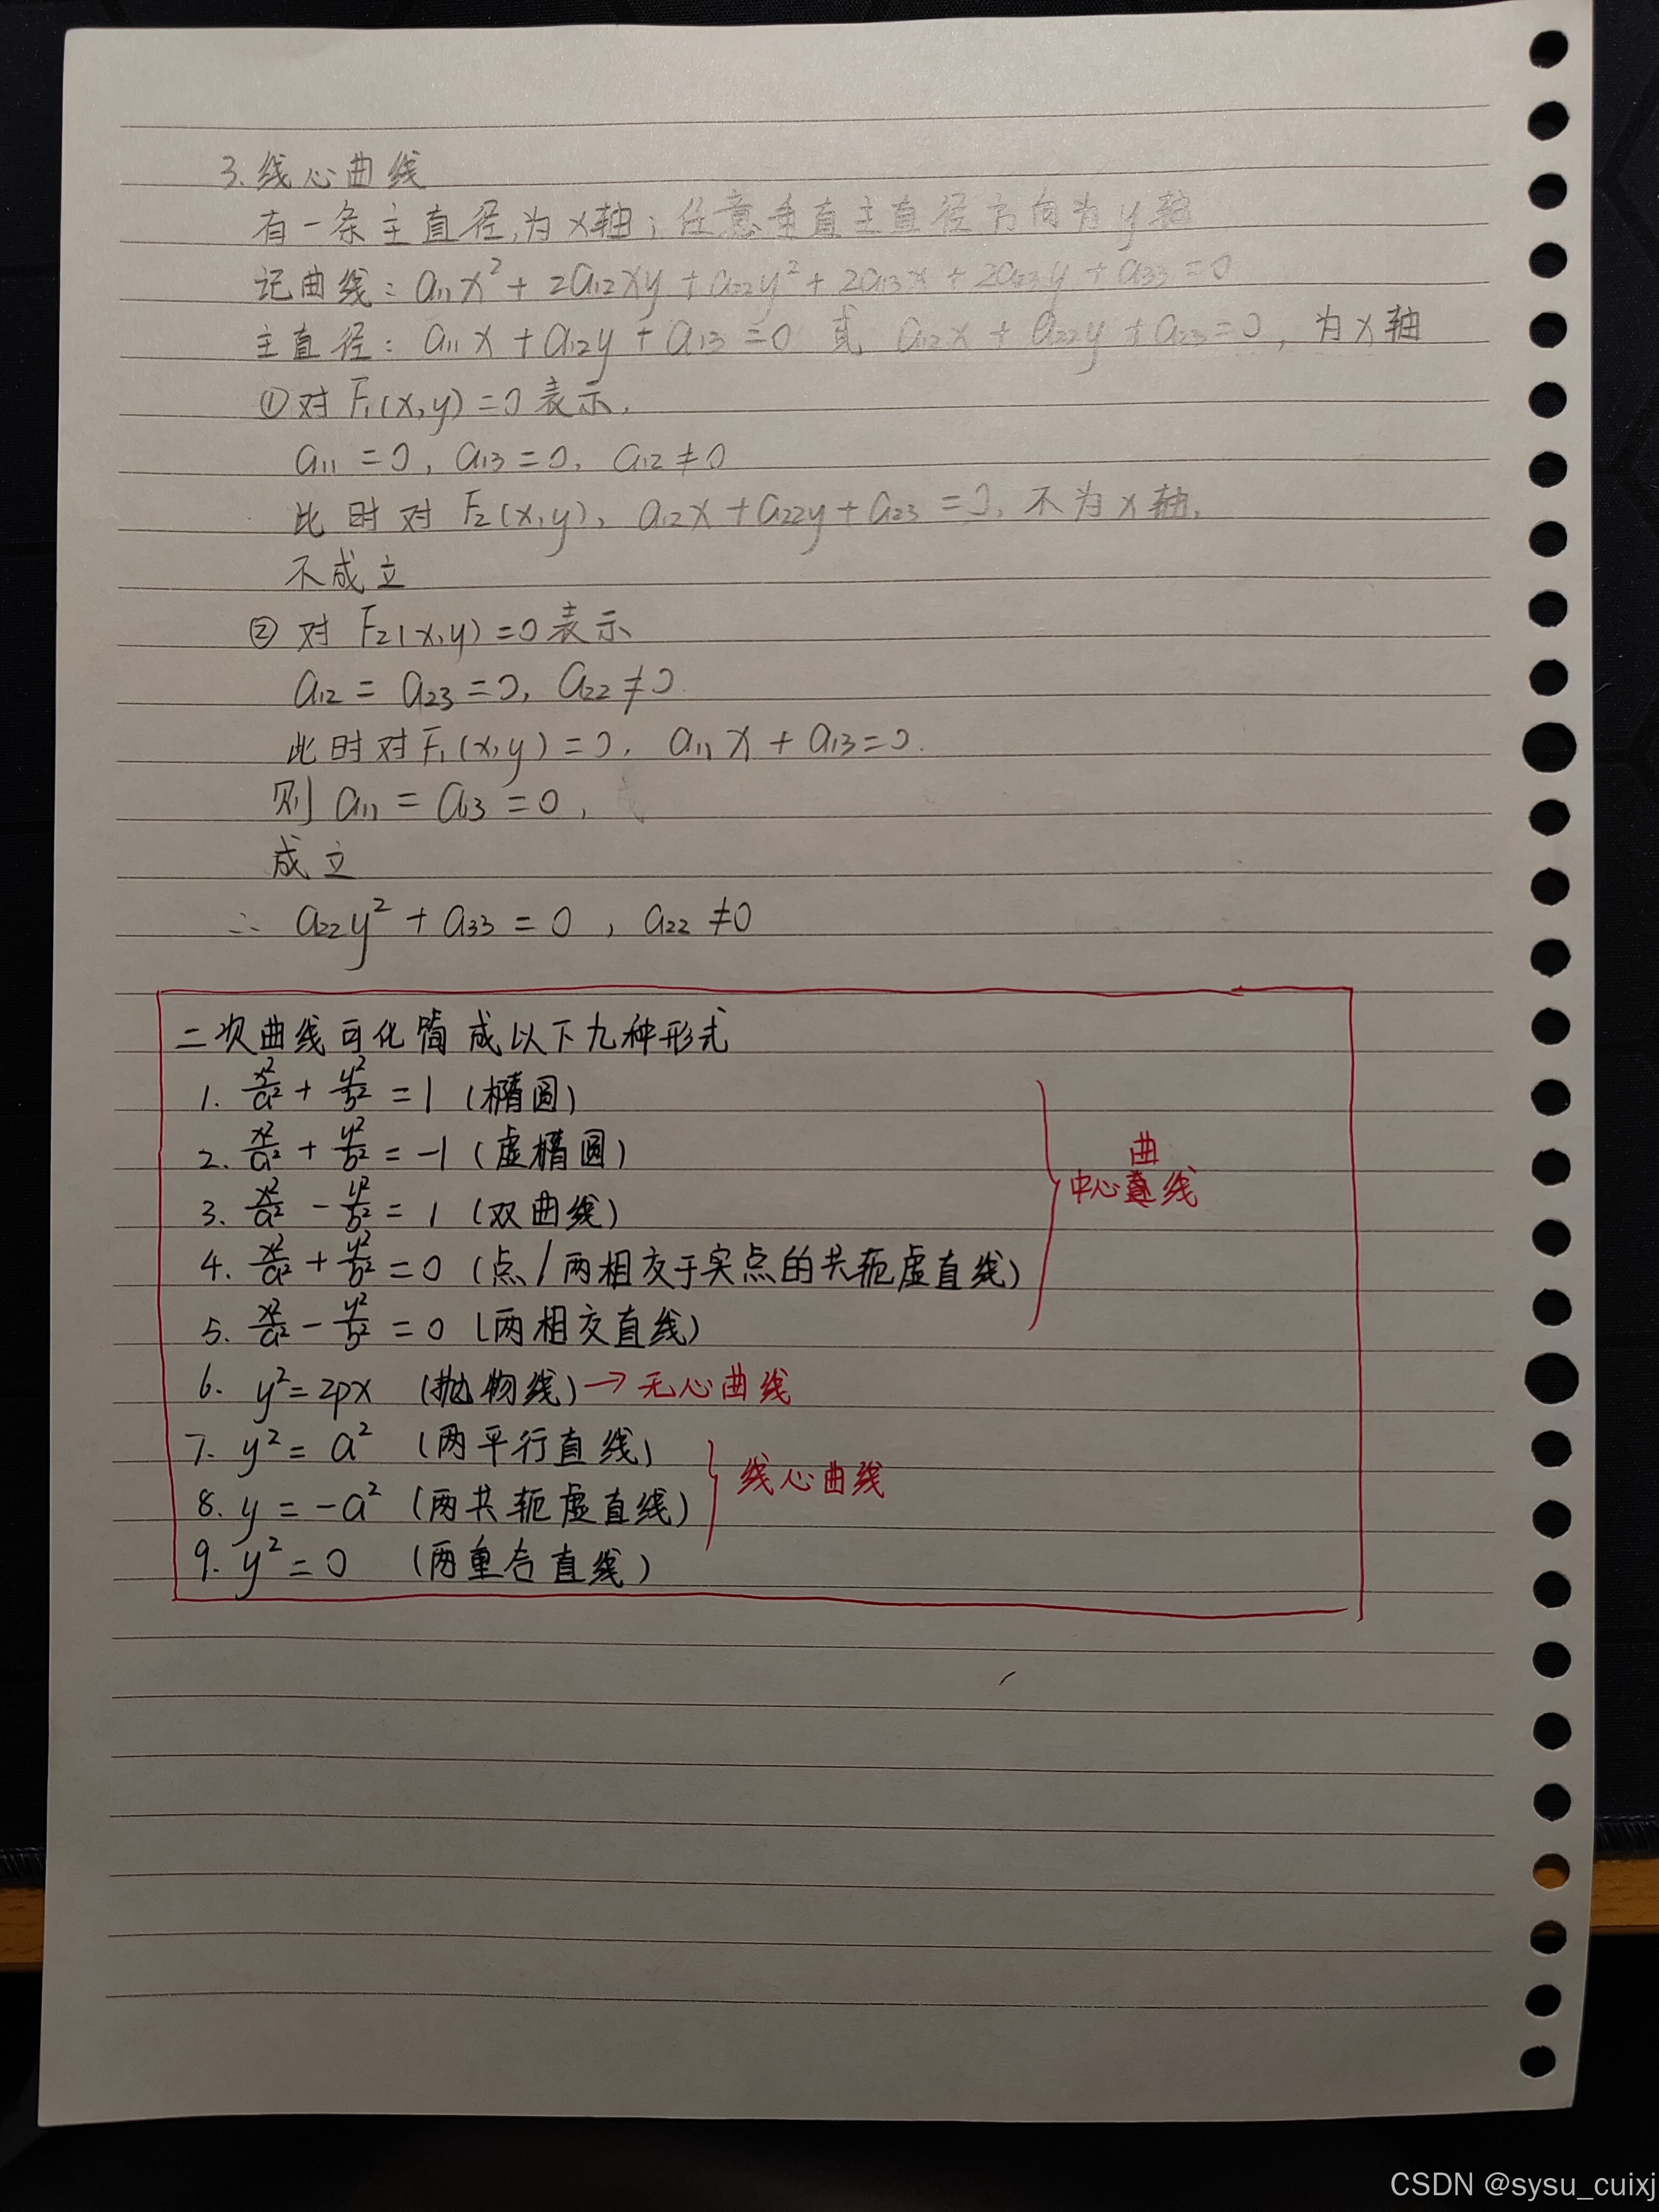 3.线心曲线
有一条主直径,为x轴;任意垂直主直径方向为y轴
记曲线:a₁₁x²+2a₁₂xy+a₂₂y²+2a₁₃x+2a₂₃y+a₃₃=0
主直径:a₁₁x+a₁₂y+a₁₃=0 或 a₁₂x+a₂₂y+a₂₃=0,为x轴
①对F₁(x,y)=0表示,
a₁₁=0,a₁₃=0,a₁₂≠0
此时对F₂(x,y),a₁₂x+a₂₂y+a₂₃=0,不为x轴,
不成立
②对F₂(x,y)=0表示
a₁₂=a₂₃=0,a₂₂≠0.
此时对F₁(x,y)=0,a₁₁x+a₁₃=0.
则a₁₁=a₁₃=0,
成立
∴ a₂₂y²+a₃₃=0,a₂₂≠0
二次曲线可化简成以下九种形式
1. x²/a²+y²/b²=1(椭圆)
2. x²/a²+y²/b²=-1(虚椭圆)
3. x²/a²-y²/b²=1(双曲线)
4. x²/a²+y²/b²=0(点/两相交于实点的共轭虚直线)
5. x²/a²-y²/b²=0(两相交直线)
中心曲线
6. y²=2px(抛物线)→无心曲线
7. y²=a²(两平行直线)
8. y=-a²(两共轭虚直线)
9. y²=0(两重合直线)
线心曲线
CSDN @sysu_cuixj